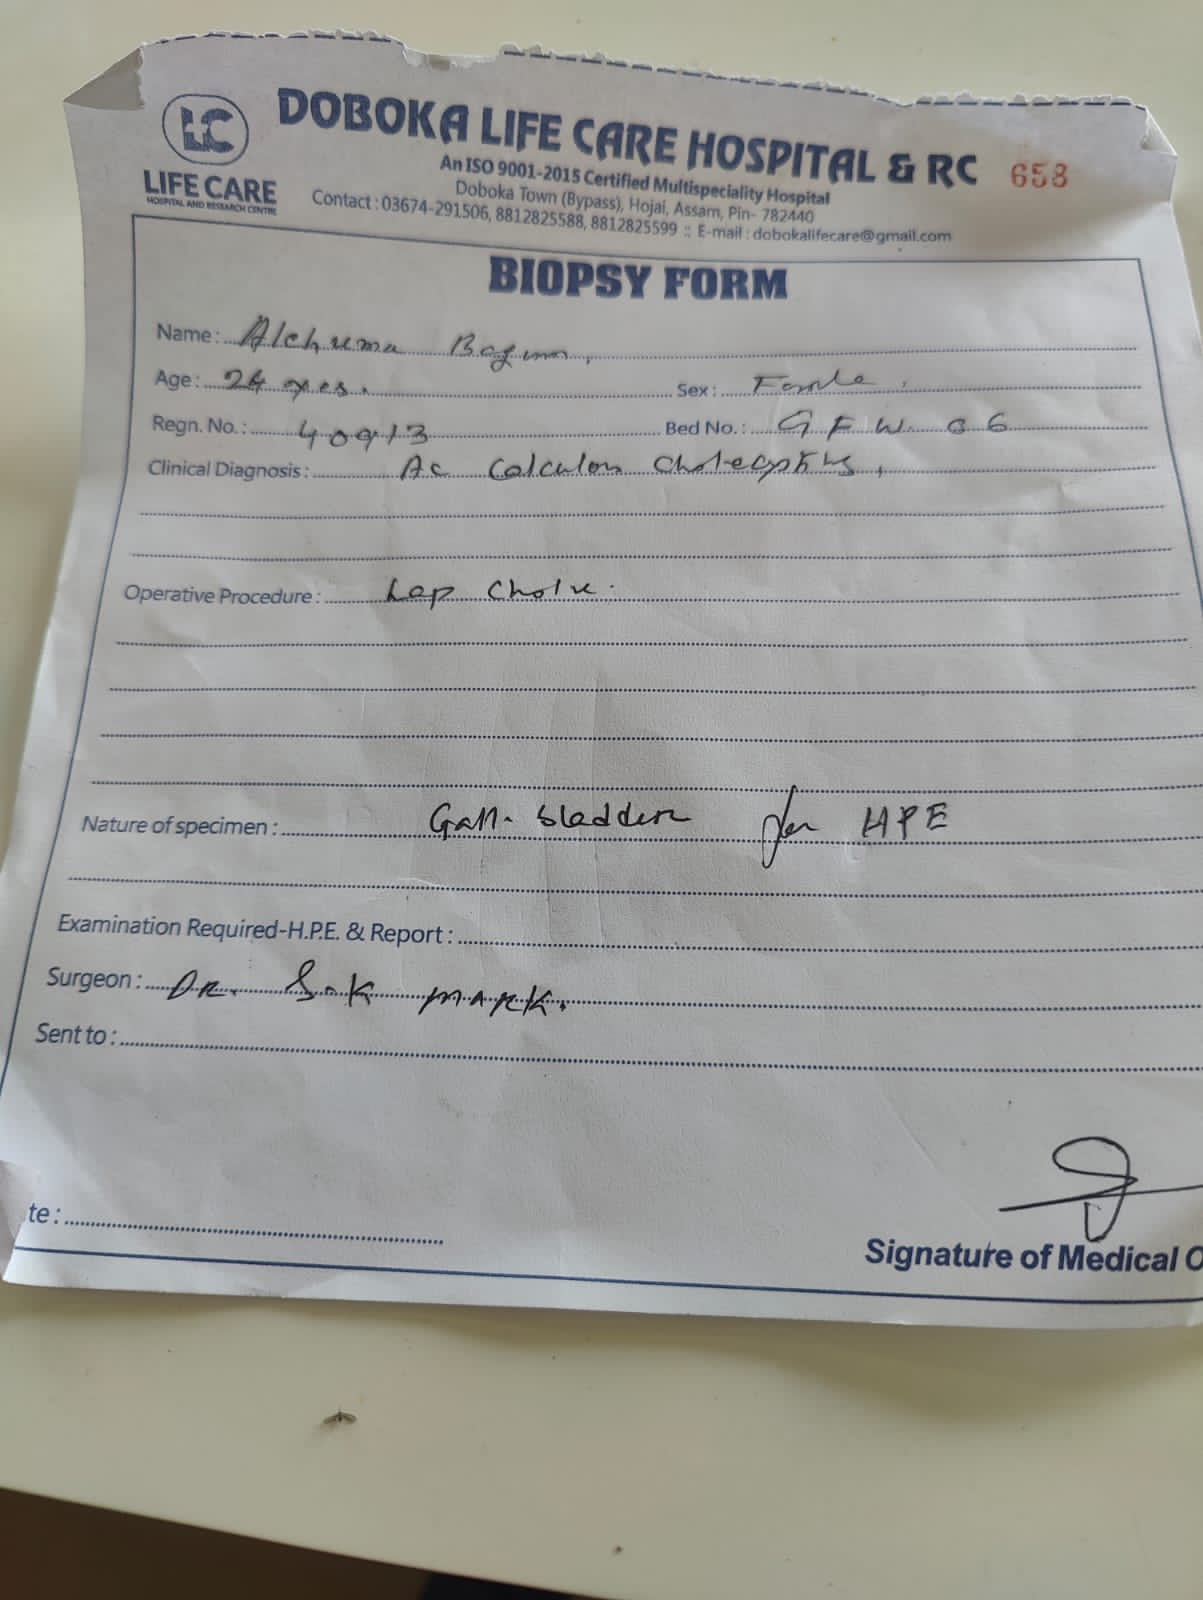 LC
LIFE CARE
HOSPITAL AND RESEARCH CENTRE
DOBOKA LIFE CARE HOSPITAL & RC 658
An ISO 9001-2015 Certified Multispeciality Hospital
Doboka Town (Bypass), Hojai, Assam, Pin- 782440
Contact : 03674-291506, 8812825588, 8812825599 :: E-mail : dobokalifecare@gmail.com
BIOPSY FORM
Name: Alchuma Begum,
Age: 24 yrs. Sex: Female,
Regn. No.: 40913 Bed No.: GFW 06
Clinical Diagnosis: Ac Calculous Cholecystitis,
Operative Procedure: Lap Chole.
Nature of specimen: Gall-bladder for HPE
Examination Required-H.P.E. & Report:
Surgeon: DR. S.K MARK.
Sent to:
te:
Signature of Medical O